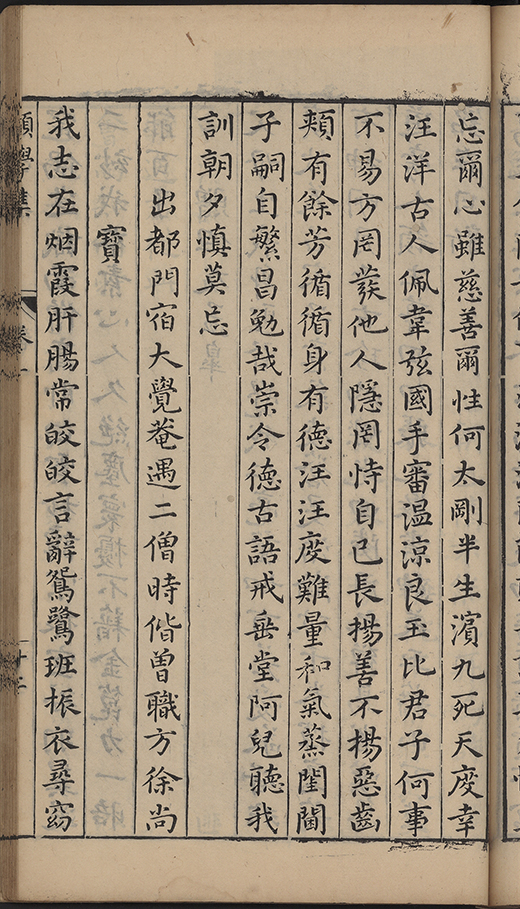 忘爾心雖慈善爾性何太剛半生濱九死天度幸
汪洋古人佩韋弦國手審温涼良玉比君子何事
不易方罔發他人隱罔恃自已長揚善不揚惡齒
頰有餘芳循循身有德汪汪度難量和氣蒸閨閫
子嗣自繁昌勉哉崇令德古語戒垂堂阿兒聽我
訓朝夕慎莫忘
出都門宿大覺菴遇二僧時偕曾職方徐尚
寳
我志在烟霞肝腸常皎皎言辭鴛鷺班振衣尋窈